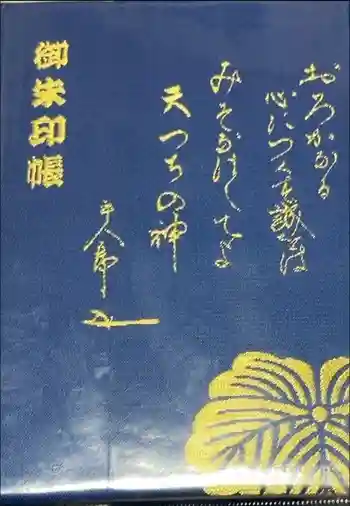 おろかなる
心につくす誠をは
みそなはしてよ
天つちの神
平八郎
御朱印帳